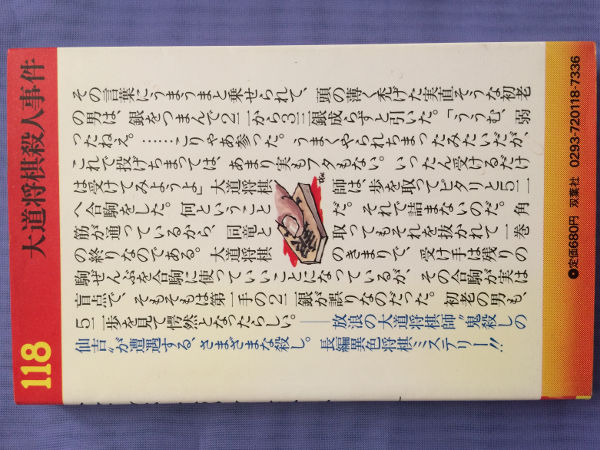 大道将棋殺人事件
118
その言葉にうまうまと乗せられて、頭の薄く禿げた実直そうな初老
の男は、銀をつまんで2二から3三銀成らずと引いた。「ううむ、弱
ったねえ。……こりゃあ参った。うまくやられちまったみたいだが、
これで投げちまっては、あまり実もフタもない。いったん受けるだけ
は受けてみようよ」大道将棋師は、歩を取ってピタリと5二
へ合駒をした。何ということだ。それで詰まないのだ。角
筋が通っているから、同竜と取ってもそれを抜かれて一巻
の終りなのである。大道将棋のきまりで、受け手は残りの
駒ぜんぶを合駒に使っていいことになっているが、その合駒が実は
盲点で、そもそもは第一手の2二銀が誤りなのだった。初老の男も、
5二歩を見て愕然となったらしい。——放浪の大道将棋師〝鬼殺しの
仙吉〟が遭遇する、さまざまな殺し。長編異色将棋ミステリー!!
●定価680円 双葉社 0293-720118-7336